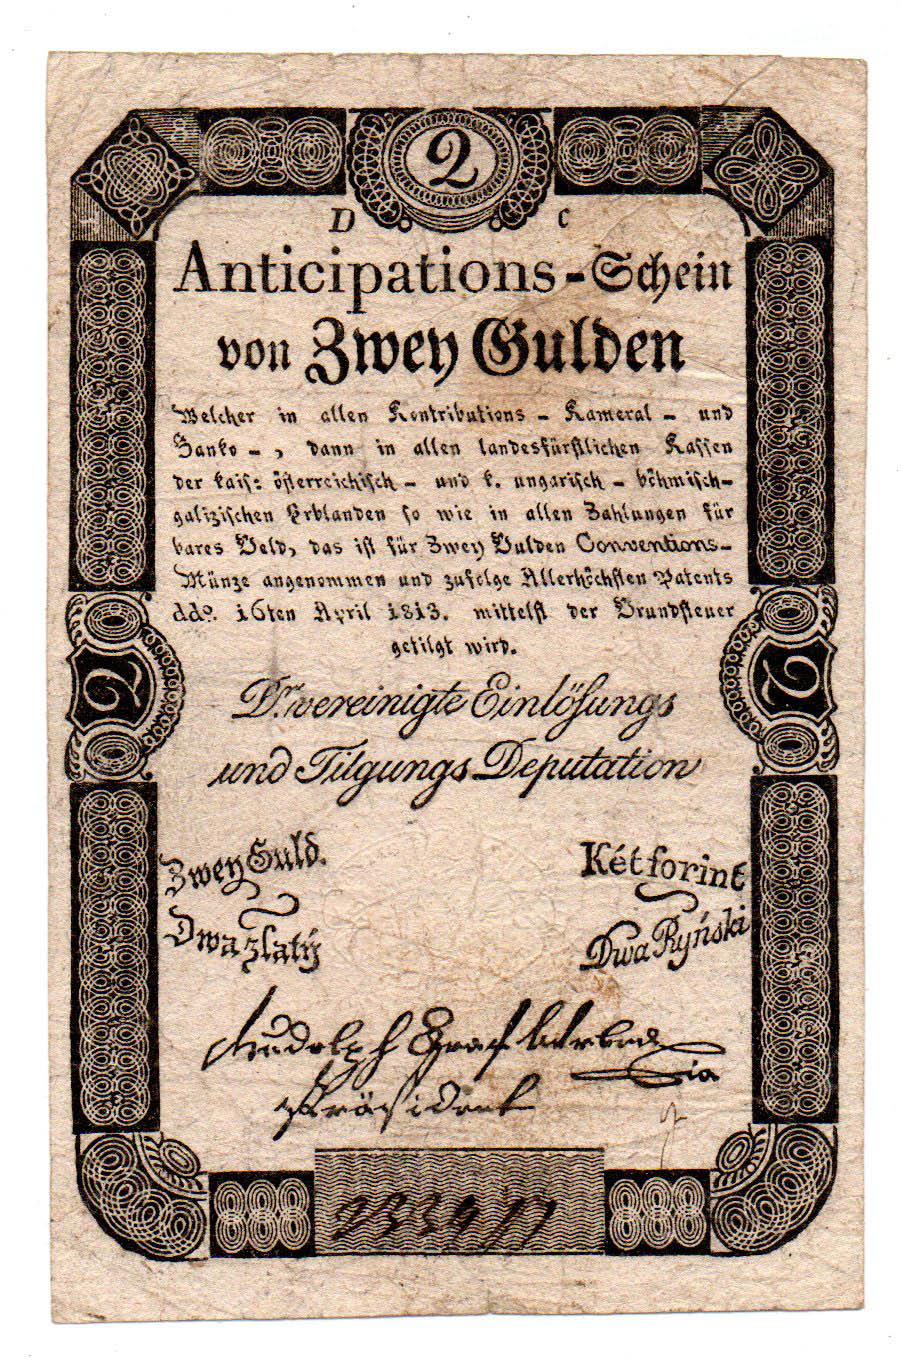 2
D C
Anticipations-Schein
von Zwey Gulden
Welcher in allen Kontributions - Kameral - und
Banko - , dann in allen landesfürstlichen Kassen
der kais: österreichisch - und k. ungarisch - böhmisch-
galizischen Erblanden so wie in allen Zahlungen für
bares Geld, das ist für Zwey Gulden Conventions-
Münze angenommen und zufolge Allerhöchsten Patents
ddo. 16ten April 1813. mittelst der Grundsteuer
getilgt wird.
2 2
Dr. vereinigte Einlösungs
und Tilgungs Deputation
Zwey Guld. Két forint
Dwa zlatý Dwa Ryński
Rudolph Graf
Präsident